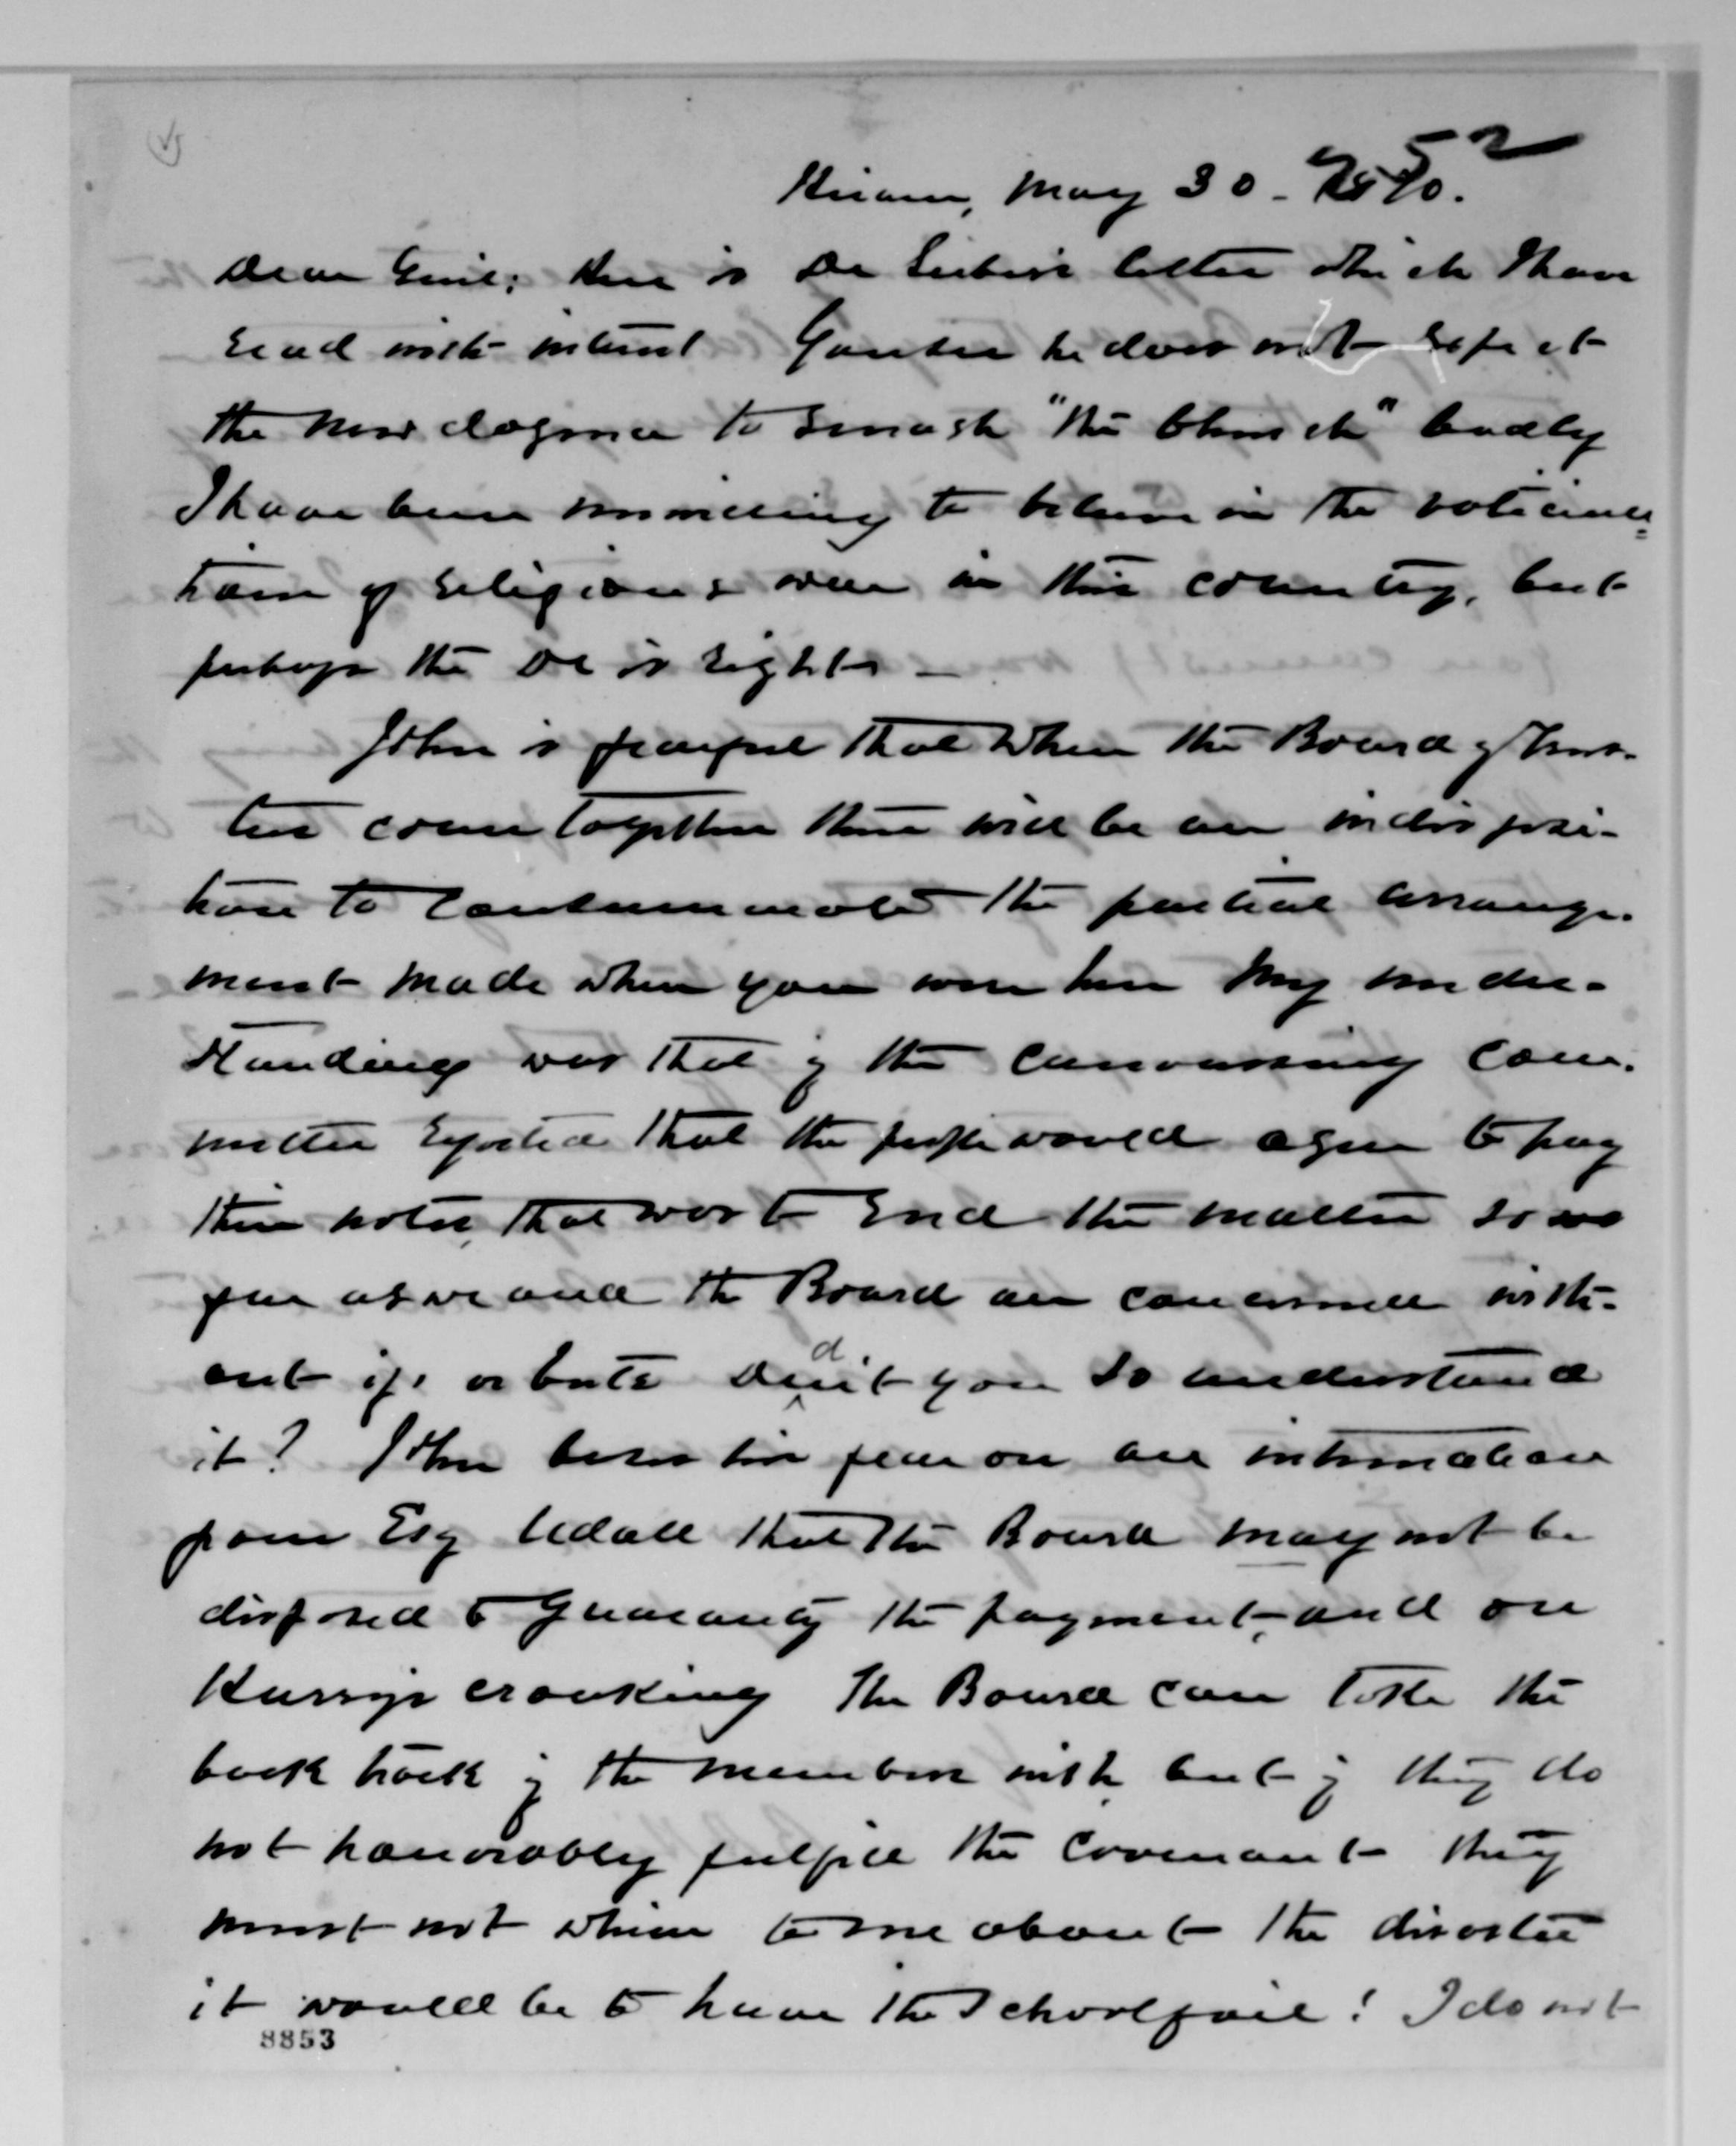 Hiram, May 30 - 1870.
52
Dear Genl: Here is Dr Lieber's letter which I have
read with interest he does not expect
the new dogma to smash "the Church" badly
I have been unwilling to believe in the vaticina-
tion of religious war in this country, but
perhaps the Dr is right -
John is fearful that when the Board of Trus-
tees come together there will be an indispo-
tion to consummate the partial arrange-
ment made when you were here My under-
standing was that if the canvassing com-
mittee reported that the people would agree to pay
their notes, that was to end the matter so
far as we and the Board are concerned with-
out ifs or buts Didn't you so understand
it? John bases his fear on an intimation
from Esq Udall that the Board may not be
disposed to guaranty the payment, and on
croaking The Board can take the
back track if the members wish but if they do
not honorably fulfill the covenant they
must not whine to me about the disaster
it would be to have the School fail! I do not
8853